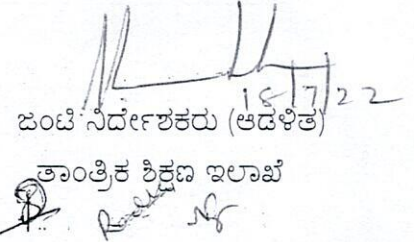 18/7/22
ಜಂಟಿ ನಿರ್ದೇಶಕರು (ಆಡಳಿತ)
ತಾಂತ್ರಿಕ ಶಿಕ್ಷಣ ಇಲಾಖೆ